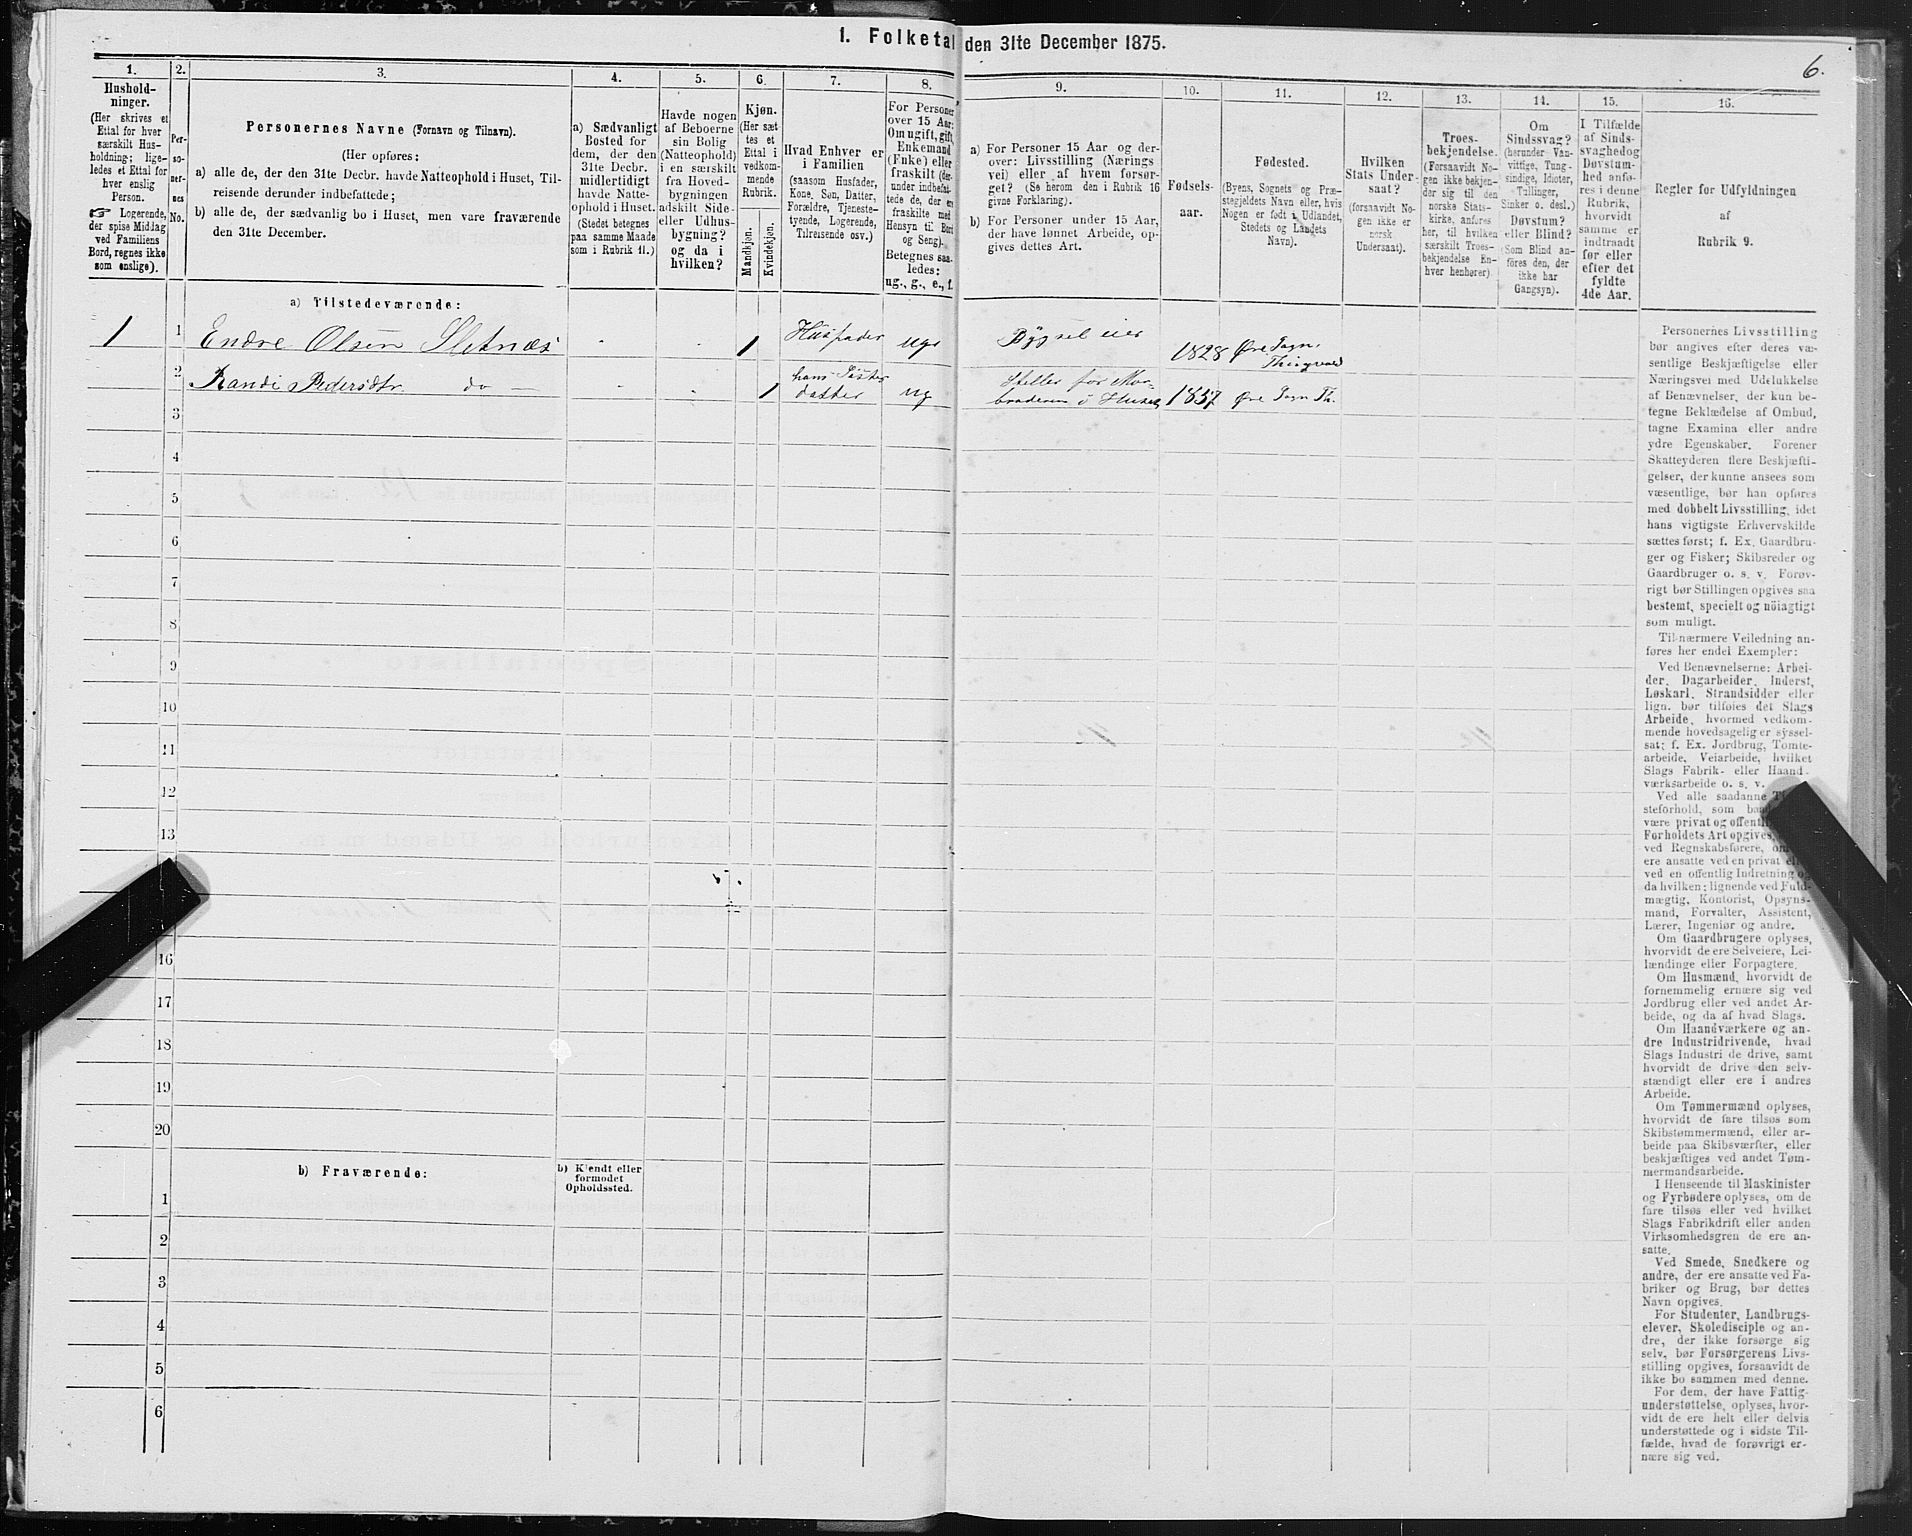 1. Folketal den 31te December 1875.
6.
1.
Hushold-
ninger.
(Her skrives et
Ettal for hver
særskilt Hus-
holdning; lige-
ledes et Ettal for
hver enslig
Person.
☞ Logerende,
der spise Middag
ved Familiens
Bord, regnes ikke
som enslige).
2.
Per-
so-
ner-
nes
No.
3.
Personernes Navne (Fornavn og Tilnavn).
(Her opføres:
a) alle de, der den 31te Decbr. havde Natteophold i Huset, Til-
reisende derunder indbefattede;
b) alle de, der sædvanlig bo i Huset, men vare fraværende
den 31te December.
4.
a) Sædvanligt
Bosted for
dem, der den
31te Decbr.
midlertidigt
havde Natte-
ophold i Huset.
(Stedet betegnes
paa samme Maade
som i Rubrik 11.)
5.
Havde nogen
af Beboerne
sin Bolig
(Natteophold)
i en særskilt
fra Hoved-
bygningen
adskilt Side-
eller Udhus-
bygning?
og da i
hvilken?
6.
Kjøn.
(Her sæt-
tes et
Ettal i
vedkom-
mende
Rubrik.
Mandkjøn.
Kvindekjøn.
7.
Hvad Enhver er
i Familien
(saasom Husfader,
Kone, Søn, Datter,
Forældre, Tjeneste-
tyende, Logerende,
Tilreisende osv.)
8.
For Personer
over 15 Aar:
Om ugift, gift,
Enkemand
(Enke) eller
fraskilt (der-
under indbefat-
tede de, der er
fraskilte med
Hensyn til Bord
og Seng).
Betegnes saa-
ledes:
ug., g., e., f.
9.
a) For Personer 15 Aar og der-
over: Livsstilling (Nærings
vei) eller af hvem forsør-
get? (Se herom den i Rubrik 16
givne Forklaring).
b) For Personer under 15 Aar,
der have lønnet Arbeide, op-
gives dettes Art.
10.
Fødsels-
aar.
11.
Fødested.
(Byens, Sognets og Præ-
stegjeldets Navn eller, hvis
Nogen er født i Udlandet,
Stedets og Landets
Navn).
12.
Hvilken
Stats Under-
saat?
(forsaavidt No-
gen ikke er
norsk
Undersaat).
13.
Troes-
bekjendelse.
(Forsaavidt No-
gen ikke bekjen-
der sig til den
norske Stats-
kirke, anføres
her, til hvilken
særskilt Troes-
bekjendelse En-
hver henhører).
14.
Om
Sindssvag?
(herunder Van-
vittige, Tung-
sindige, Idioter,
Tullinger,
Sinker o. desl.)
Døvstum?
eller Blind?
(Som Blind an-
føres den, der
ikke har
Gangsyn).
15.
I Tilfælde
af Sinds-
svaghed og
Døvstum-
hed anfø-
res i denne
Rubrik,
hvorvidt
samme er
indtraadt
før eller
efter det
fyldte
4de Aar.
16.
Regler for Udfyldningen
af
Rubrik 9.
a) Tilstedeværende:
1 1 Endre Olsen Sletnæs 1 Husfader ug. Bygsel eier 1828 Øre Sogn, Thingvold
2 Randi Pedersdtr. do — 1 hans Søster datter ug Steller for Mor- broderen i Huset 1857 Øre Sogn Th.
3
4
5
6
7
8
9
10
11
12
13
16
17
18
19
20
b) Fraværende:
b) Kjendt eller
formodet
Opholdssted.
1
2
3
4
5
6
Personernes Livsstilling
bør angives efter deres væ-
sentlige Beskjæftigelse eller
Næringsvei med Udelukkelse
af Benævnelser, der kun be-
tegne Beklædelse af Ombud,
tagne Examina eller andre
ydre Egenskaber. Forener
Skatteyderen flere Beskjæfti-
gelser, der kunne ansees som
væsentlige, bør han opføres
med dobbelt Livsstilling, idet
hans vigtigste Erhvervskilde
sættes først; f. Ex. Gaardbru-
ger og Fisker; Skibsreder og
Gaardbruger o. s. v. Forøv-
rigt bør Stillingen opgives saa
bestemt, specielt og nöiagtigt
som muligt.
Til nærmere Veiledning an-
føres her endel Exempler:
Ved Benævnelserne: Arbei-
der, Dagarbeider, Inderst,
Løskarl, Strandsidder eller
lign. bør tilføies det Slags
Arbeide, hvormed vedkom-
mende hovedsagelig er syssel-
sat; f. Ex. Jordbrug, Tomte-
arbeide, Veiarbeide, hvilket
Slags Fabrik- eller Haand-
værksarbeide o. s. v.
Ved alle saadanne
steforhold, som
være privat og offentlig
Forholdets Art opgives,
ved Regnskabsførere,
ere ansatte ved en privat
ved en offentlig Indretning og
da hvilken; lignende ved Fuld-
mægtig, Kontorist, Opsyns-
mand, Forvalter, Assistent,
Lærer, Ingeniør og andre.
Om Gaardbrugere oplyses,
hvorvidt de ere Selveiere, Lei-
lændinge eller Forpagtere.
Om Husmænd, hvorvidt de
fornemmelig ernære sig ved
Jordbrug eller ved andet Ar-
beide, og da af hvad Slags.
Om Haandværkere og an-
dre Industridrivende, hvad
Slags Industri de drive, samt
hvorvidt de drive den selv-
stændigt eller ere i andres
Arbeide.
Om Tømmermænd oplyses,
hvorvidt de fare tilsøs som
Skibstømmermænd, eller ar-
beide paa Skibsværfter, eller
beskjæftiges ved andet Tøm-
mermandsarbeide.
I Henseende til Maskinister
og Fyrbødere oplyses, om de
fare tilsøs eller ved hvilket
Slags Fabrikdrift eller anden
Virksomhedsgren de ere an-
satte.
Ved Smede, Snedkere og
andre, der ere ansatte ved Fa-
briker og Brug, bør dettes
Navn opgives.
For Studenter, Landbrugs-
elever, Skoledisciple og an-
dre, der ikke forsørge sig
selv, bør Forsørgerens Livs-
stilling opgives, forsaavidt de
ikke bo sammen med denne.
For dem, der have Fattig-
understøttelse, oplyses, hvor-
vidt de ere helt eller delvis
understøttede og i sidste Til-
fælde, hvad de forøvrigt er-
nære sig ved.